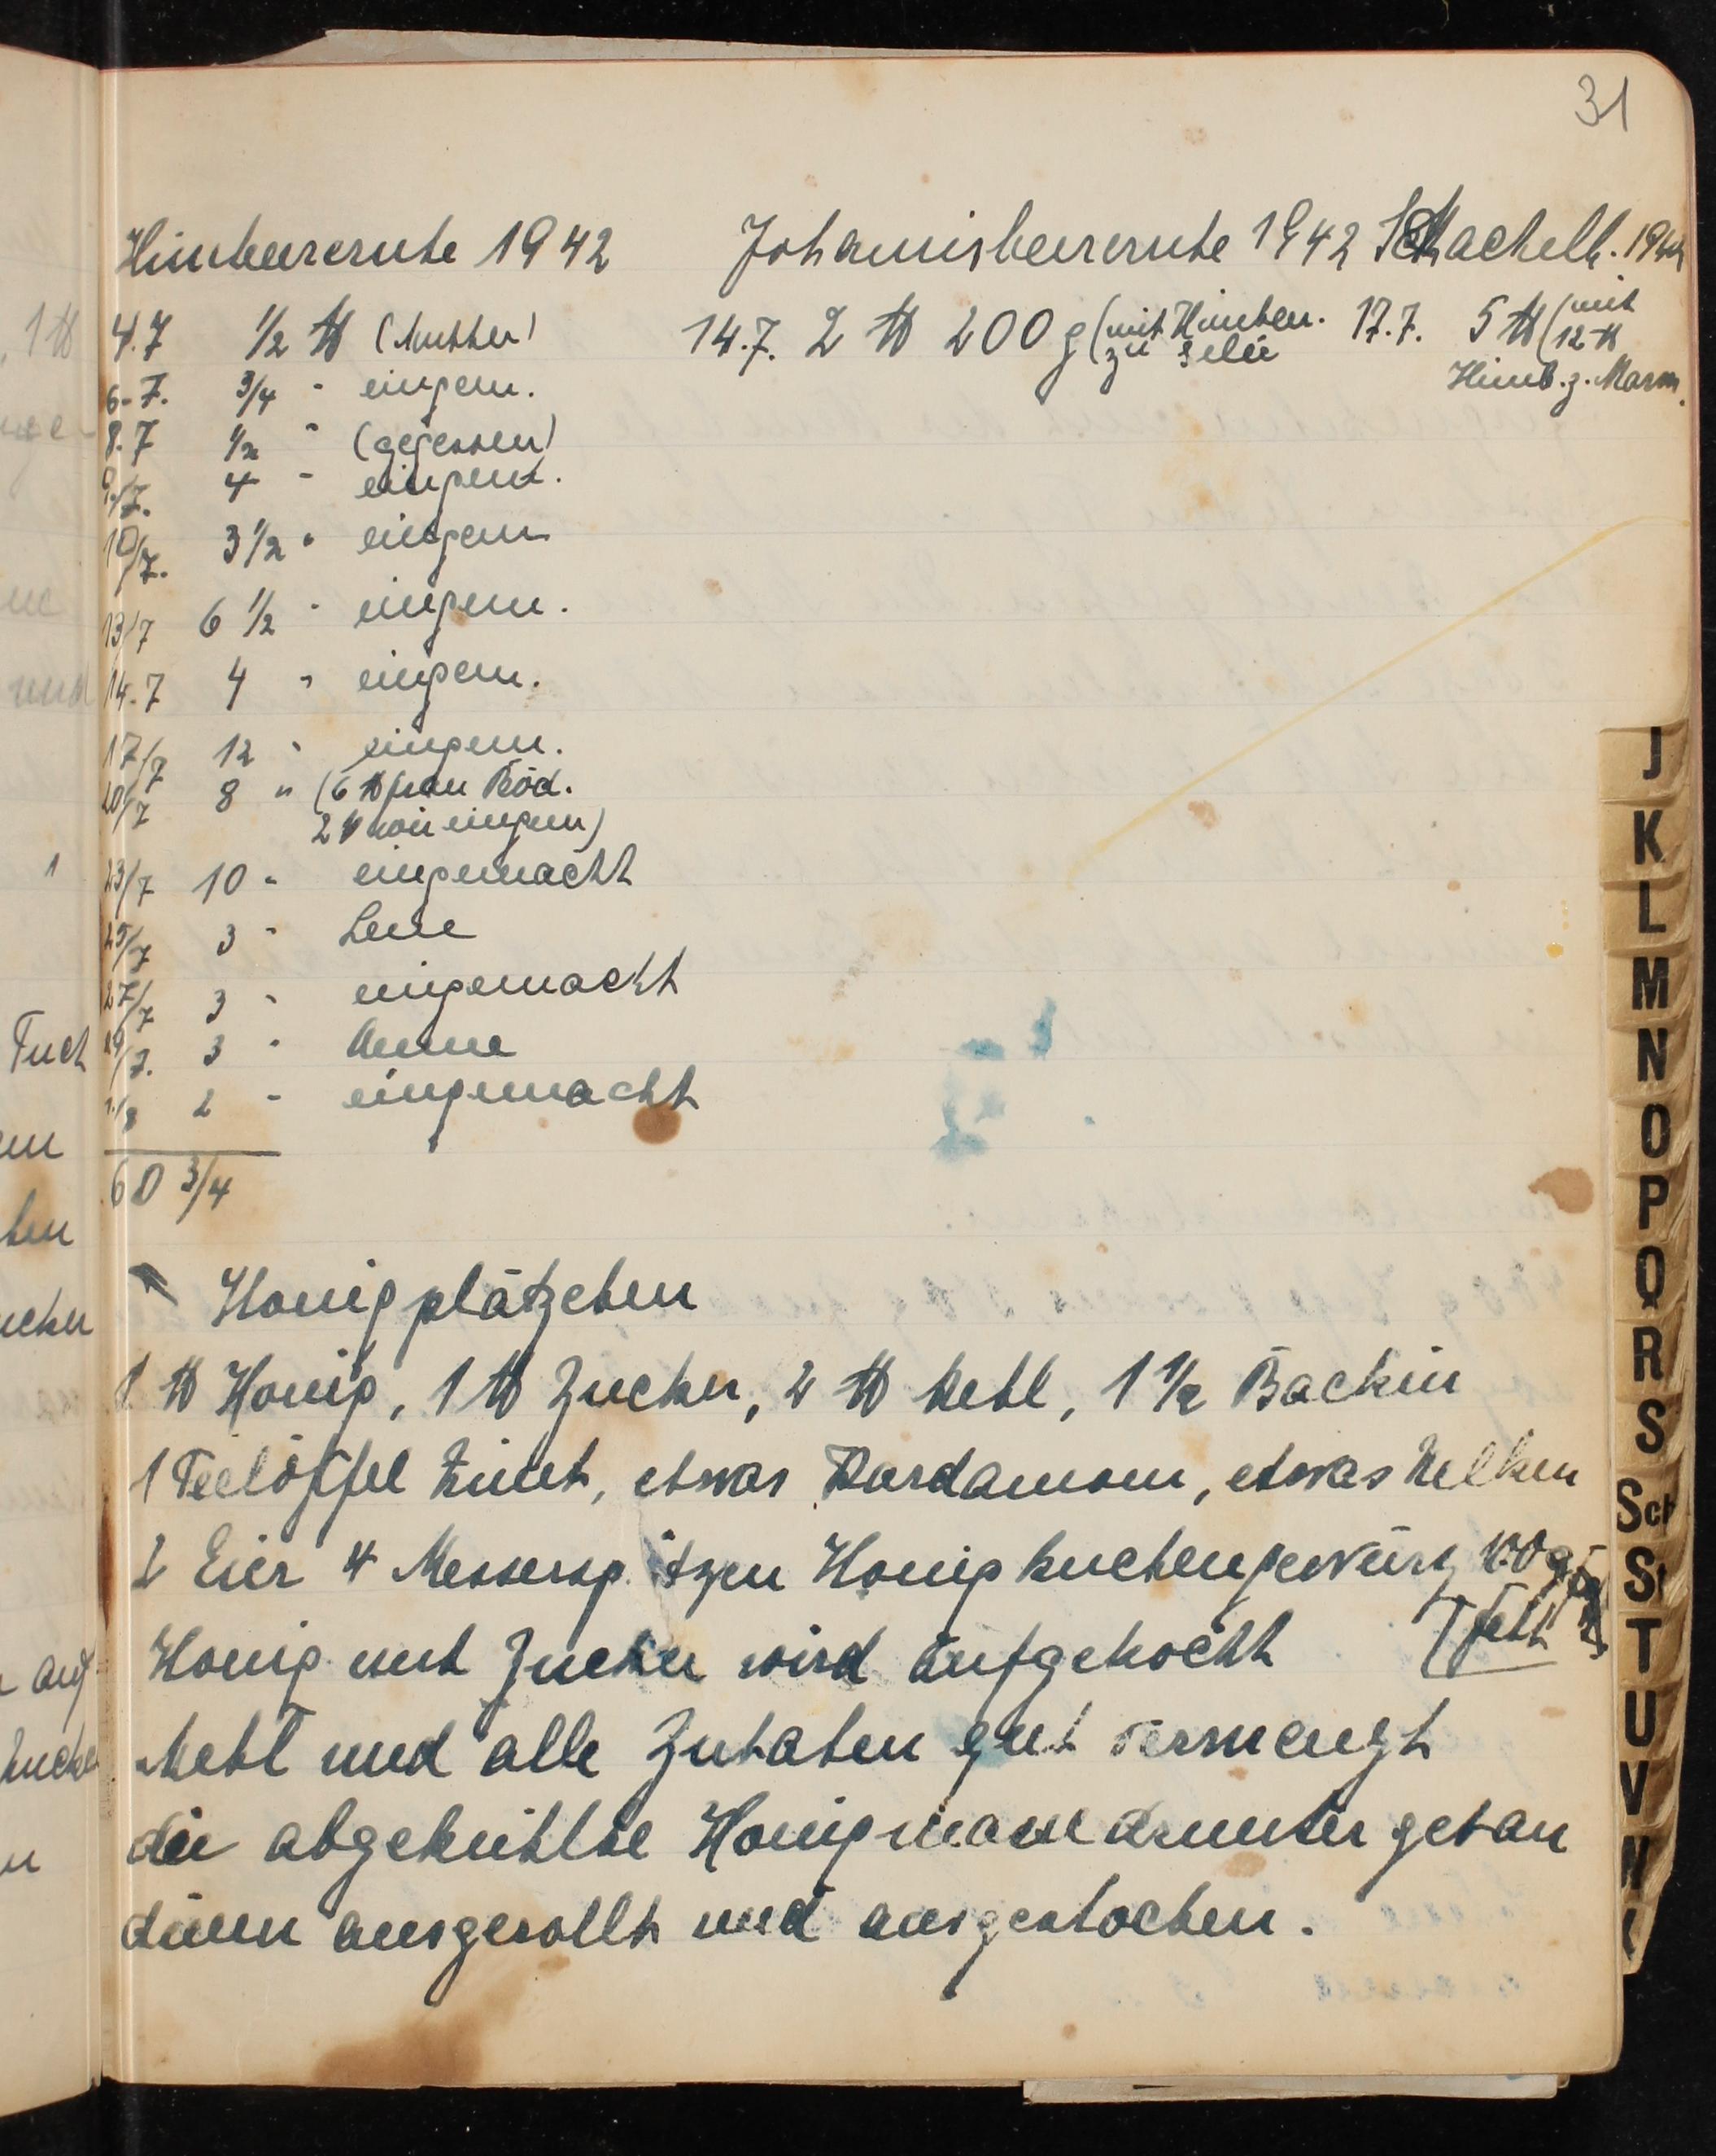 31
Himbeerernte 1942
4.7 1/2 ℔ (Mutter)
6.7. 3/4 " eingem.
8.7 1/2 " (gegessen)
9./7. 4 " eingem.
10/7. 3 1/2 " eingem
13/7 6 1/2 " eingem.
14.7 4 " eingem.
17/7 12 " eingem.
20/7 8 " (6 ℔ Frau Böd.
2 ℔ wir eingem)
23/7 10 " eingemacht
25/7 3 " Lene
27/7 3 " eingemacht
29/7. 3 " Änne
1./8 2 " eingemacht
60 3/4
Johannisbeerernte 1942
14.7. 2 ℔ 200 g (mit Himbeer.
zu Gelee
Stachelb. 1942
17.7. 5 ℔ (mit
12 ℔
Himb. z. Marm.
Honigplätzchen
1 ℔ Honig, 1 ℔ Zucker, 2 ℔ Mehl, 1 1/2 Backin
1 Teelöffel Zimt, etwas Kardamom, etwas Nelken
2 Eier 4 Messerspitzen Honigkuchengewürz 100 g
Fett
Honig mit Zucker wird aufgekocht
Mehl und alle Zutaten gut vermengt
die abgekühlte Honigmasse darunter getan
dünn ausgerollt und ausgestochen.
J
K
L
M
N
O
P
Q
R
S
Sch
St
T
U
V